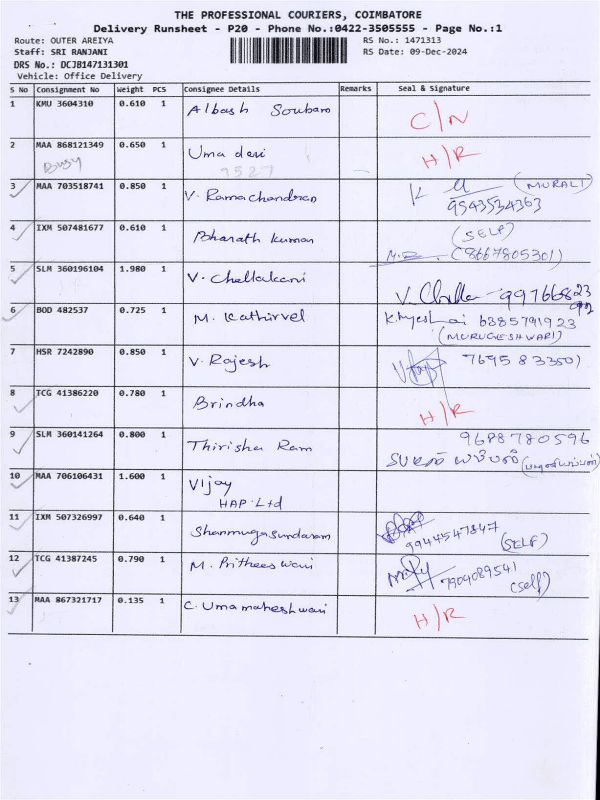 THE PROFESSIONAL COURIERS, COIMBATORE
Delivery Runsheet - P20 - Phone No.:0422-3505555 - Page No.:1
Route: OUTER AREIYA RS No.: 1471313
Staff: SRI RANJANI RS Date: 09-Dec-2024
DRS No.: DCJB147131301
Vehicle: Office Delivery
S No Consignment No Weight PCS Consignee Details Remarks Seal & Signature
1 KMU 3604310 0.610 1 Albash Soubam C/N
2 MAA 868121349 0.650 1 Uma devi H/R
Busy 7527
3 MAA 703518741 0.850 1 V. Ramachandran (MURALI)
9543534363
4 IXM 507481677 0.610 1 Bharath kumar (SELF)
(8667805301)
5 SLM 360196104 1.980 1 V. Chellakani
V. Chella
6 BOD 482537 0.725 1 M. Kathirvel 6385791923
(MURUGESHWARI)
7 HSR 7242890 0.850 1 V. Rajesh 7695833501
8 TCG 41386220 0.780 1 Brindha H/R
9 SLM 360141264 0.800 1 Thirisha Ram 9688780596
10 MAA 706106431 1.600 1 Vijay
HAP. Ltd
11 IXM 507326997 0.640 1 Shanmugasundaram 9944547847
(SELF)
12 TCG 41387245 0.790 1 M. Pritheeswari 7904089541
(self)
13 MAA 867321717 0.135 1 C. Umamaheshwari H/R